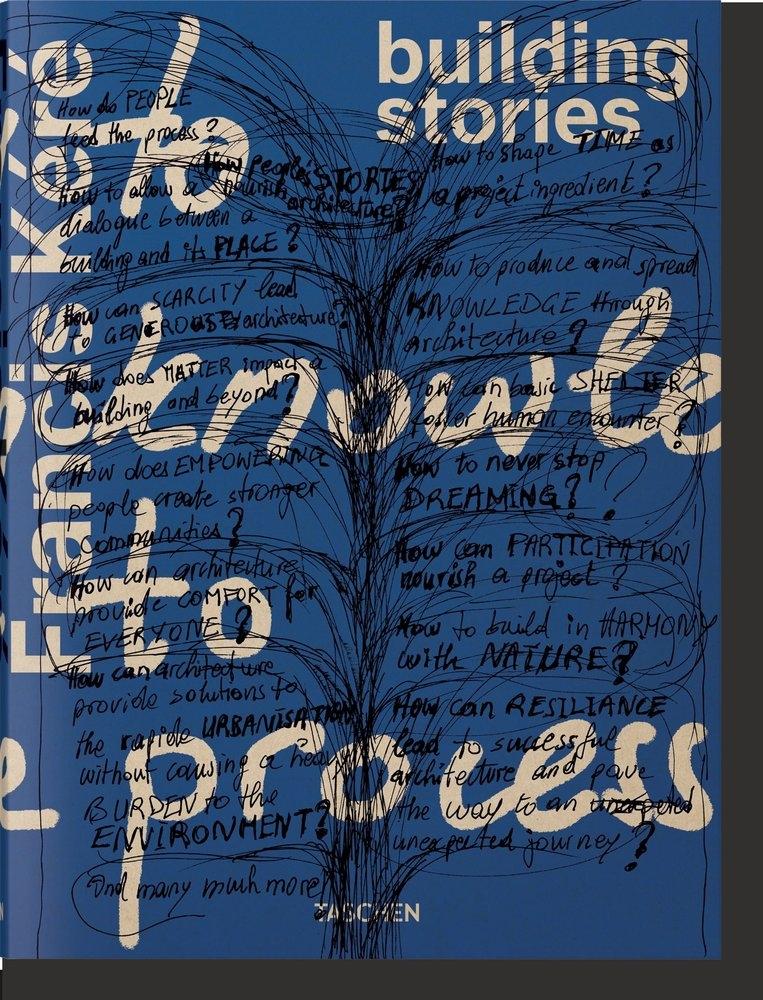 building
stories
Francis Kéré
to
knowle
to
process
How do PEOPLE
feed the process?
How people's STORIES
nourish architecture?
How to allow a
dialogue between a
building and its PLACE?
How can SCARCITY lead
to GENEROUS architecture?
How does MATTER impact a
building and beyond?
How does EMPOWERING
people create stronger
communities?
How can architecture
provide COMFORT for
EVERYONE?
How can architecture
provide solutions to
the rapide URBANISATION
without causing a heavy
BURDEN to the
ENVIRONMENT?
And many much more!
How to shape TIME as
a project ingredient?
How to produce and spread
KNOWLEDGE through
architecture?
How can basic SHELTER
foster human encounter?
How to never stop
DREAMING?
How can PARTICIPATION
nourish a project?
How to build in HARMONY
with NATURE?
How can RESILIANCE
lead to successful
architecture and pave
the way to an
unexpected journey?
TASCHEN